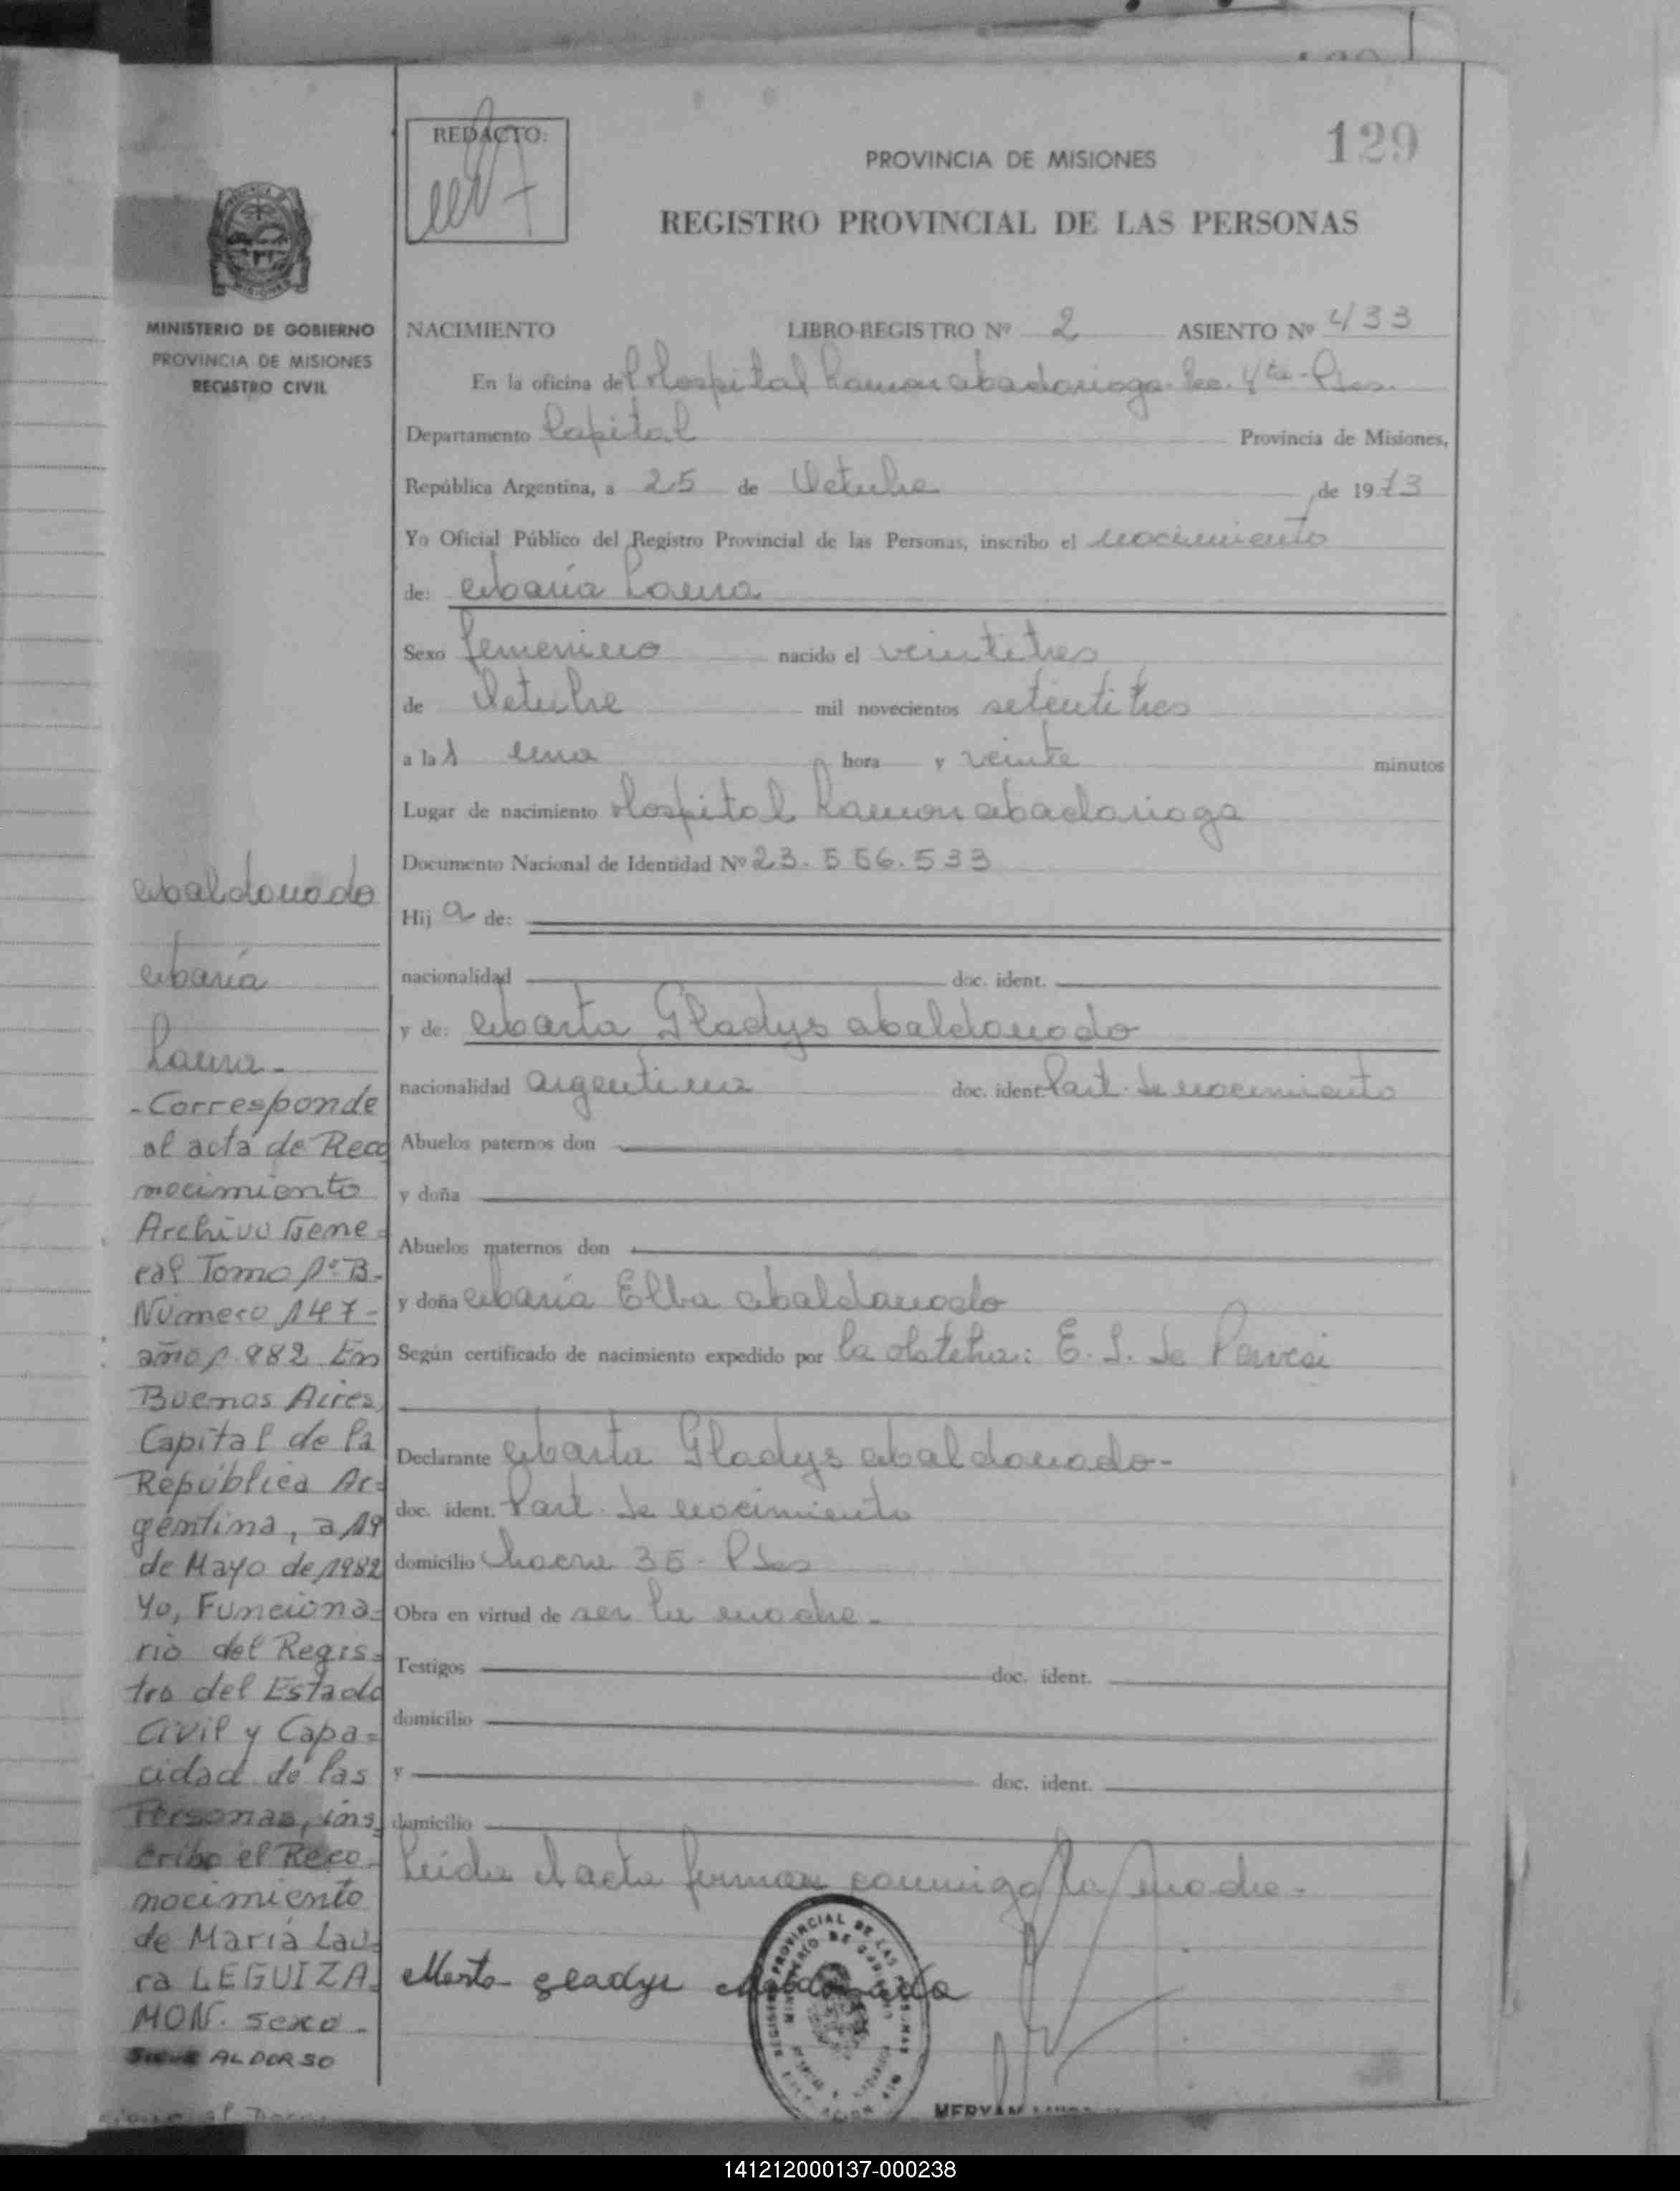 129
REDACTO:
PROVINCIA DE MISIONES
REGISTRO PROVINCIAL DE LAS PERSONAS
MINISTERIO DE GOBIERNO
PROVINCIA DE MISIONES
REGISTRO CIVIL
NACIMIENTO LIBRO-REGISTRO Nº 2 ASIENTO Nº 433
En la oficina del Hospital Ramon Madariaga. Sec. 4ta - Pdas.
Departamento Capital Provincia de Misiones,
República Argentina, a 25 de Octubre de 1973
Yo Oficial Público del Registro Provincial de las Personas, inscribo el nacimiento
de: María Laura
Sexo femenino nacido el veintitres
de Octubre mil novecientos setentitres
a la una hora y veinte minutos
Lugar de nacimiento Hospital Ramon Madariaga
Documento Nacional de Identidad Nº 23.556.533
Hija de:
nacionalidad doc. ident.
y de: Marta Gladys Maldonado
nacionalidad argentina doc. ident. Part. de nacimiento
Abuelos paternos don
y doña
Abuelos maternos don
y doña María Elba Maldonado
Según certificado de nacimiento expedido por la obstetra: E. S. de
Declarante Marta Gladys Maldonado-
doc. ident. Part. de nacimiento
domicilio Chacra 35 - Pdas
Obra en virtud de ser la madre -
Testigos doc. ident.
domicilio
y doc. ident.
domicilio
Leida el acta firman conmigo la madre -
Marta Gladys Maldonado
Maldonado
María
Laura -
- Corresponde
al acta de Reco
nocimiento
Archivo Gene=
ral Tomo 1º B-
Número 147-
año 1.982 En
Buenos Aires,
Capital de la
República Ar=
gentina, a 19
de Mayo de 1982
Yo, Funciona=
rio del Regis=
tro del Estado
Civil y Capa=
cidad de las
Personas, ins=
cribo el Reco-
nocimiento
de María Lau=
ra LEGUIZA=
MON. sexo -
AL DORSO
MERYAM
141212000137-000238